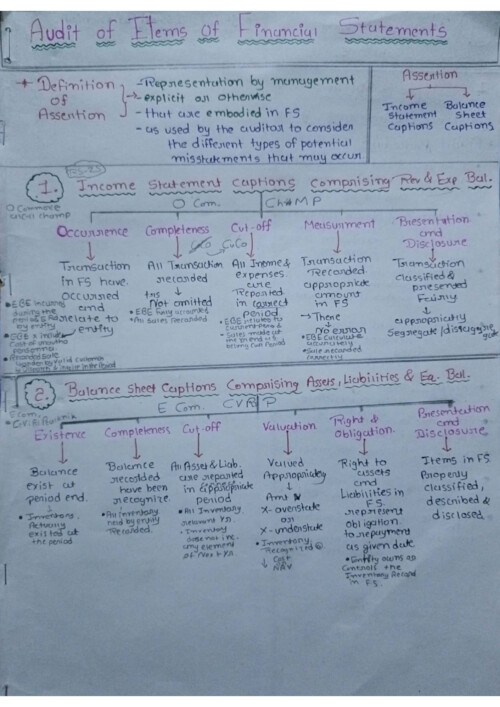 Audit of Items of Financial Statements
+ Definition of Assention
- Representation by management
- explicit or otherwise
- that are embodied in FS
- as used by the auditor to consider
the different types of potential
misstatements that may occur
Assention
Income Statement Captions
Balance Sheet Captions
1. Income Statement Captions Comprising Rev & Exp Bal.
O Com. ChaMP
Occurrence
Transaction
In FS have
occurred
and
relate to
entity
Completeness
All Transaction
recorded
Not omitted
Cut-off
All Income &
expenses
are
Reported
in correct
period
Measurment
Transaction
Recorded
appropriate
amount
in FS
→ There
↓
No error
• EBE Calculate
accurately
• Sale recorded
correctly
Presentation
and
Disclosure
Transaction
classified &
presented
Fairly
↓
appropriately
Segregate /
2. Balance Sheet Captions Comprising Assets, Liabilities & Eq. Bal.
E Com. CVR P
Existence
Balance
exist at
period end.
• Inventory
Actually
existed at
the period
Completeness
Balance
recorded
have been
recognize.
• All inventory
held by entity
Recorded.
Cut-off
All Asset & Liab.
are reported
in appropriate
period
• All Inventory
Inventory
does not inc.
any element
of Next Yr.
Valuation
Valued
Appropriately
↓
Amt
X- overstate
or
X- understate
• Inventory
Recognized @
↓ Cost
NRV
Right &
obligation.
Right to
assets
and
Liabilities in
FS
represent
obligation
to repayment
as given date
• Entity owns or
Controls the
Inventory Record
in FS.
Presentation
and
Disclosure
Items in FS
Properly
classified,
described &
disclosed